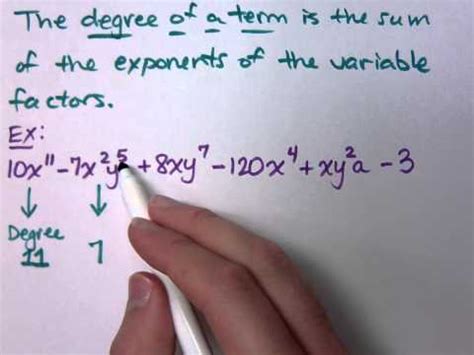 The degree of a term is the sum
of the exponents of the variable
factors.
Ex:
10x¹¹ - 7x²y⁵ + 8xy⁷ - 120x⁴ + xy²a - 3
↓ ↓
Degree 7
11